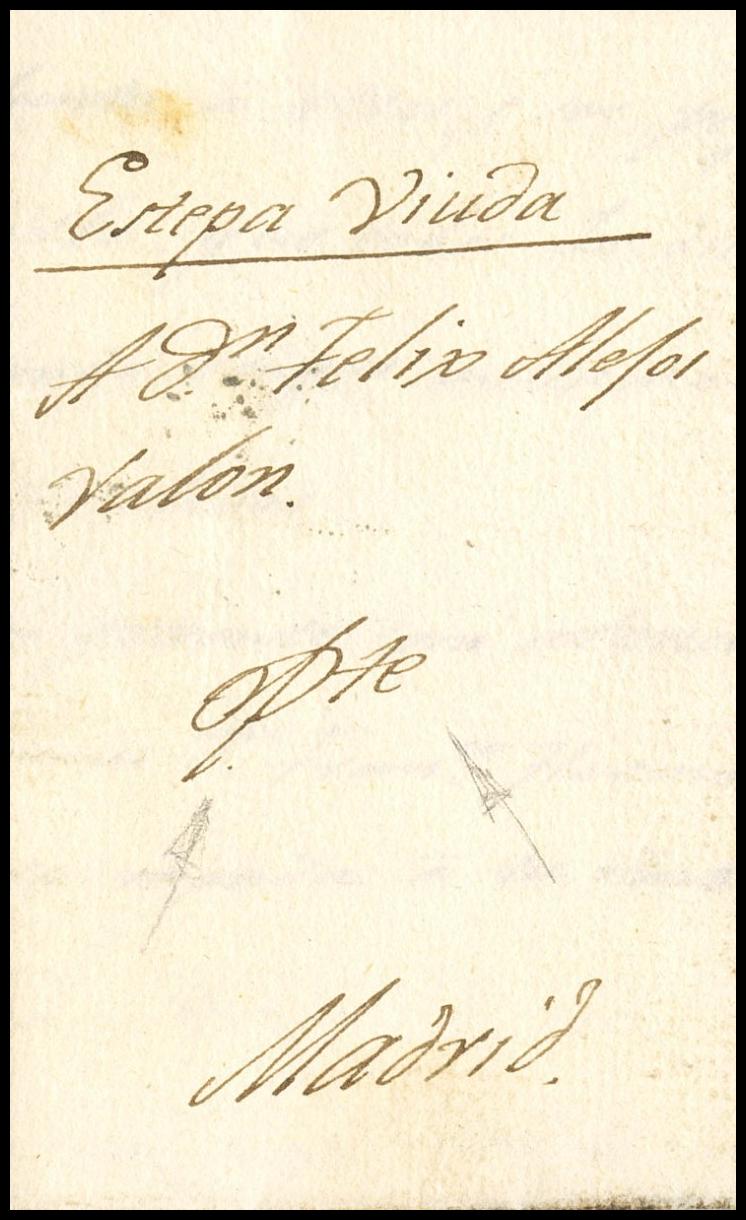 Estepa Viuda
A Dn Felix Alesoi
valon.
Pte
Madrid.